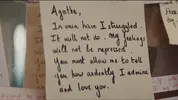 Agathe,
In vain have I struggled.
It will not do. My feelings
will not be repressed.
You must allow me to tell
you how ardently I admire
and love you.